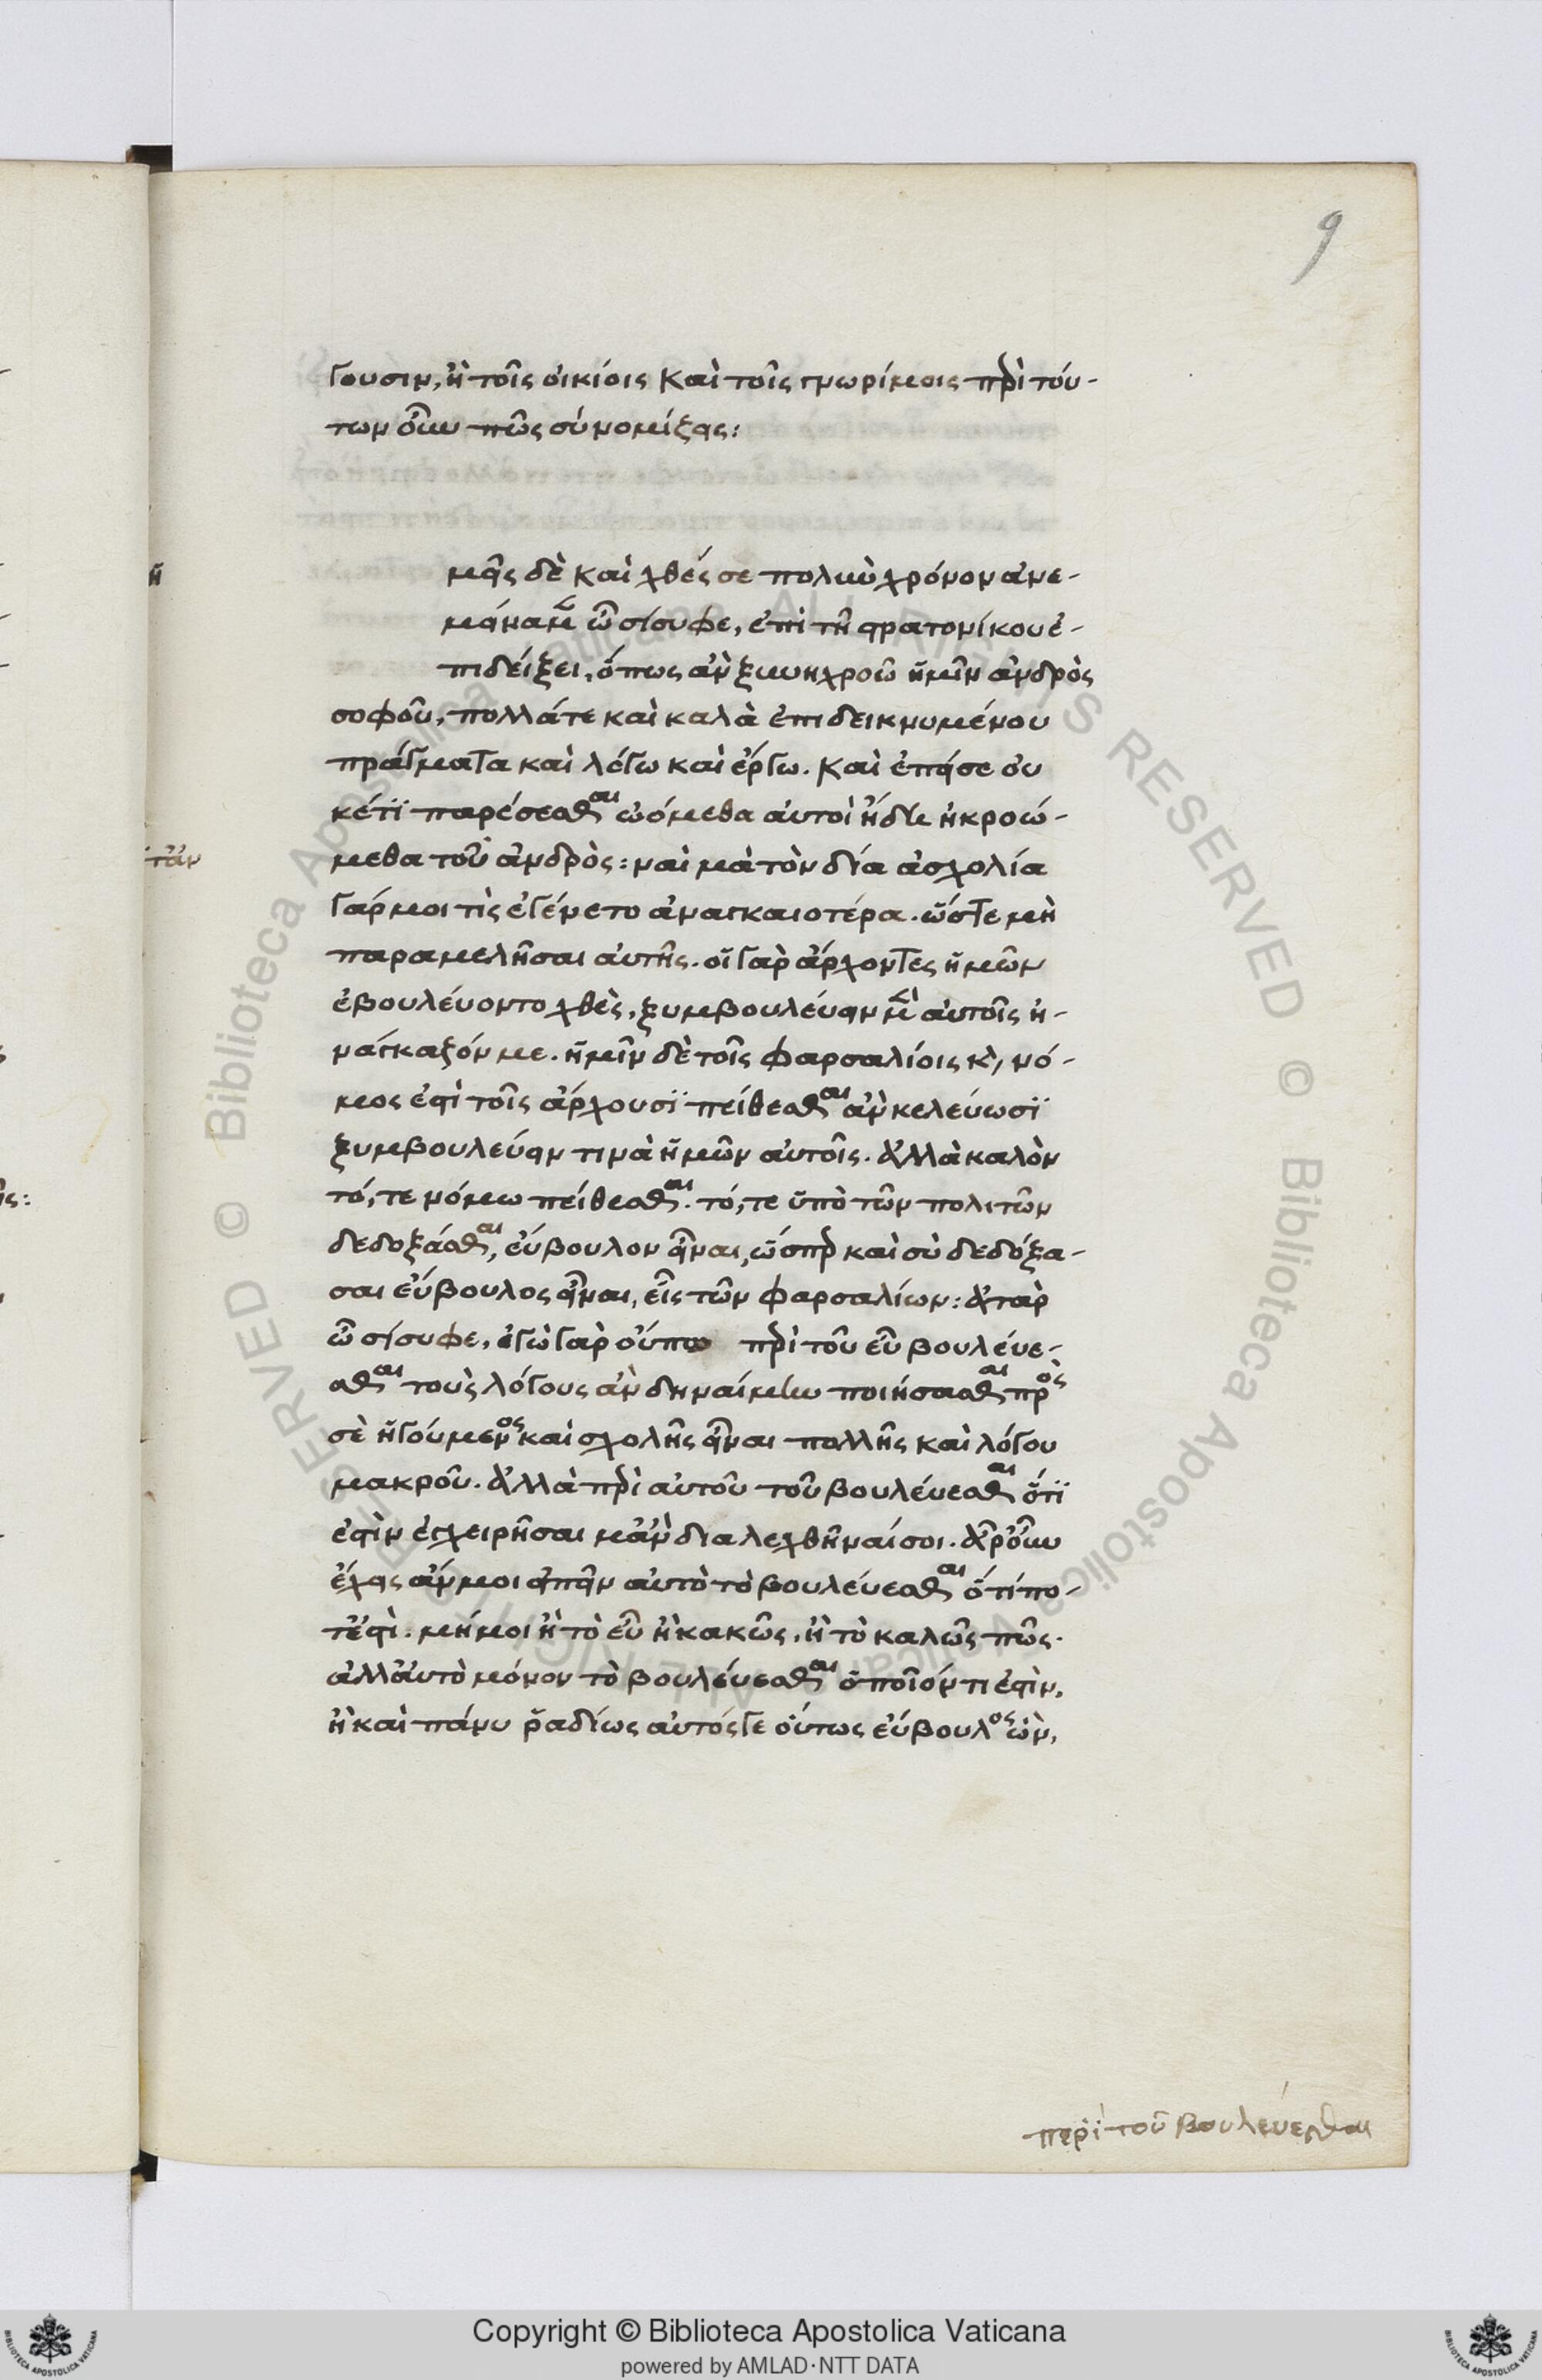 9
γουσιν, ἢ τοῖς οἰκίοις καὶ τοῖς γνωρίμοις περὶ τού-
των οὖν πῶς σὺ νομίζεις:
μεῖς δὲ καὶ χθές σε πολὺν χρόνον ἀνε-
μείναμεν ὦ σίσυφε, ἐπὶ τῆ στρατονίκου ἐ-
πιδείξει, ὅπως ἂν ξυνηκροῶ ἡμῖν ἀνδρὸς
σοφοῦ, πολλά τε καὶ καλὰ ἐπιδεικνυμένου
πράγματα καὶ λόγω καὶ ἔργω. καὶ ἐπεί σε οὐ
κέτι παρέσεσθαι ὠόμεθα αὐτοὶ ἤδη ἠκροώ-
μεθα τοῦ ἀνδρὸς: ναὶ μὰ τὸν δία ἀσχολία
γάρ μοι τὶς ἐγένετο ἀναγκαιοτέρα. ὥστε μὴ
παραμελῆσαι αὐτῆς. οἱ γὰρ ἄρχοντες ἡμῶν
ἐβουλεύοντο χθὲς, ξυμβουλεύειν μὲν αὐτοῖς ἠ-
νάγκαζόν με. ἡμῖν δὲ τοῖς φαρσαλίοις κ, νό-
μος ἐστὶ τοῖς ἄρχουσι πείθεσθαι ἂν κελεύωσι
ξυμβουλεύειν τινὰ ἡμῶν αὐτοῖς. ἀλλὰ καλὸν
τό, τε νόμω πείθεσθαι. τό, τε ὑπὸ τῶν πολιτῶν
δεδοξάσθαι, εὔβουλον εἶναι, ὥσπερ καὶ σὺ δεδόξα-
σαι εὔβουλος εἶναι, εἷς τῶν φαρσαλίων: ἀτὰρ
ὦ σίσυφε, ἐγὼ γὰρ οὔπω περὶ τοῦ εὖ βουλεύε-
σθαι τοὺς λόγους ἂν δυναίμην ποιήσασθαι πρὸς
σὲ ἡγούμενος καὶ σχολῆς εἶναι πολλῆς καὶ λόγου
μακροῦ. ἀλλὰ περὶ αὐτοῦ τοῦ βουλεύεσθαι ὅτι
ἐστὶν ἐγχειρῆσαι μἂν διαλεχθῆναί σοι. ἆρ οὖν
ἔχεις ἄν μοι εἰπεῖν αὐτὸ τὸ βουλεύεσθαι ὅτί πο-
τέστὶ. μή μοι ἢ τὸ εὖ ἢ κακῶς. ἢ τὸ καλῶς πῶς.
ἀλλἀυτὸ μόνον τὸ βουλεύεσθαι ὁποῖόν τι ἐστὶν.
ἢ καὶ πάνυ ῥαδίως αὐτός γε οὕτως εὔβουλος ὢν,
περὶ τοῦ βουλεύεσθαι
Copyright © Biblioteca Apostolica Vaticana
powered by AMLAD·NTT DATA